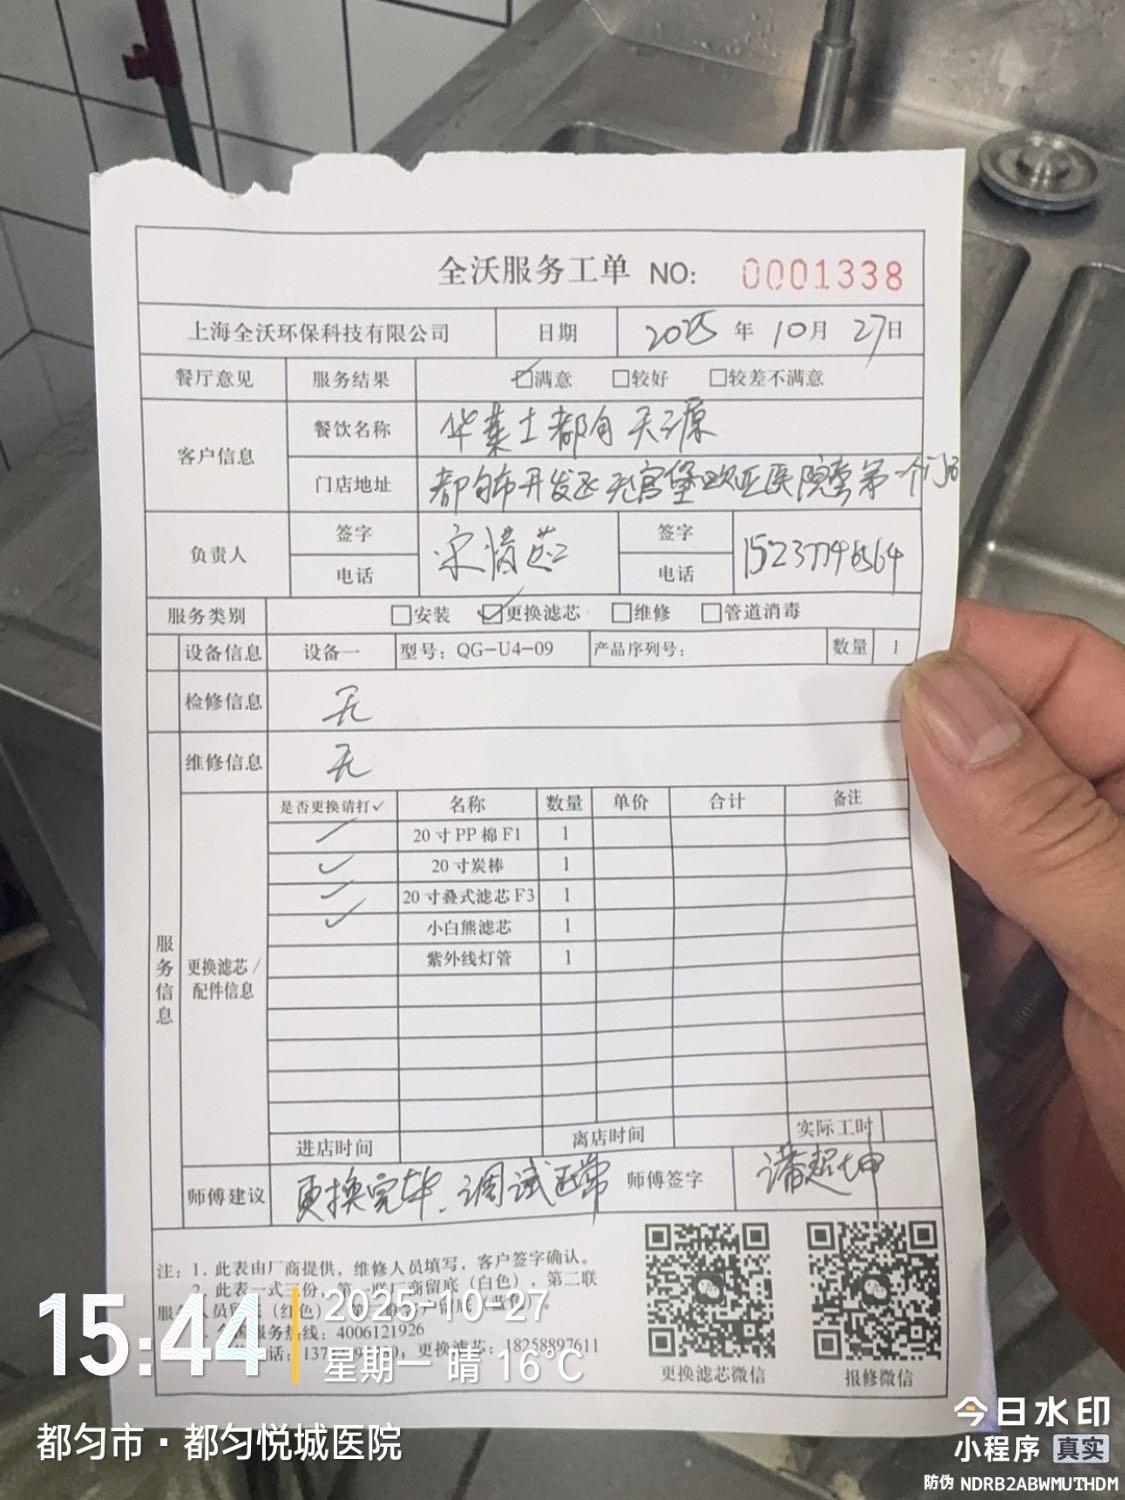 全沃服务工单 NO: 0001338
上海全沃环保科技有限公司 日期 2025 年 10 月 27 日
餐厅意见 服务结果 ☑满意 □较好 □较差不满意
客户信息 餐饮名称 华莱士都匀天源
门店地址 都匀市开发区 医院旁第一个门店
负责人 签字 签字
电话 电话
服务类别 □安装 ☑更换滤芯 □维修 □管道消毒
设备信息 设备一 型号：QG-U4-09 产品序列号： 数量 1
检修信息 无
维修信息 无
服务信息
更换滤芯/配件信息
是否更换请打✓ 名称 数量 单价 合计 备注
✓ 20寸PP棉F1 1
✓ 20寸炭棒 1
✓ 20寸叠式滤芯F3 1
✓ 小白熊滤芯 1
紫外线灯管 1
进店时间 离店时间 实际工时
师傅建议 更换完毕、调试正常 师傅签字
注：1. 此表由厂商提供，维修人员填写，客户签字确认。
2. 此表一式三份，第一联厂商留底（白色），第二联
服务 员留底（红色）
服务热线：4006121926
更换滤芯：18258897611
更换滤芯微信 报修微信
15:44 2025-10-27
星期一 晴 16℃
都匀市·都匀悦城医院
今日水印
小程序 真实
防伪 NDRB2ABWMUTHDM